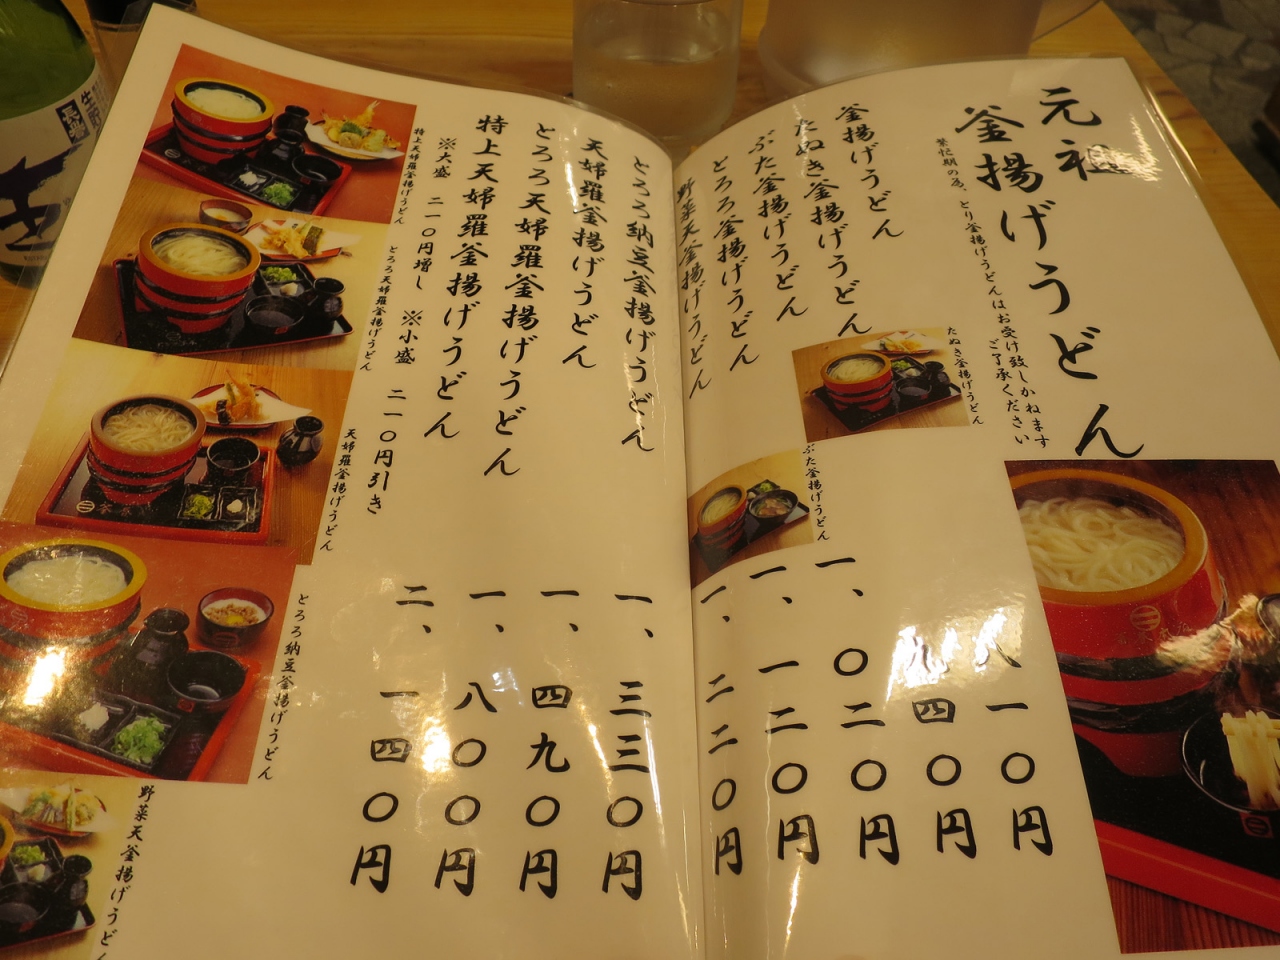 元祖
釜揚げうどん
繁忙期の為、とり釜揚げうどんはお受け致しかねます
ご了承ください
釜揚げうどん 八一〇円
たぬき釜揚げうどん 九四〇円
ぶた釜揚げうどん 一、〇二〇円
とろろ釜揚げうどん 一、一二〇円
野菜天釜揚げうどん 一、二二〇円
たぬき釜揚げうどん
ぶた釜揚げうどん
とろろ納豆釜揚げうどん 一、三三〇円
天婦羅釜揚げうどん 一、四九〇円
とろろ天婦羅釜揚げうどん 一、八〇〇円
特上天婦羅釜揚げうどん 二、一四〇円
※大盛 二一〇円増し ※小盛 二一〇円引き
特上天婦羅釜揚げうどん
とろろ天婦羅釜揚げうどん
天婦羅釜揚げうどん
とろろ納豆釜揚げうどん
野菜天釜揚げうどん